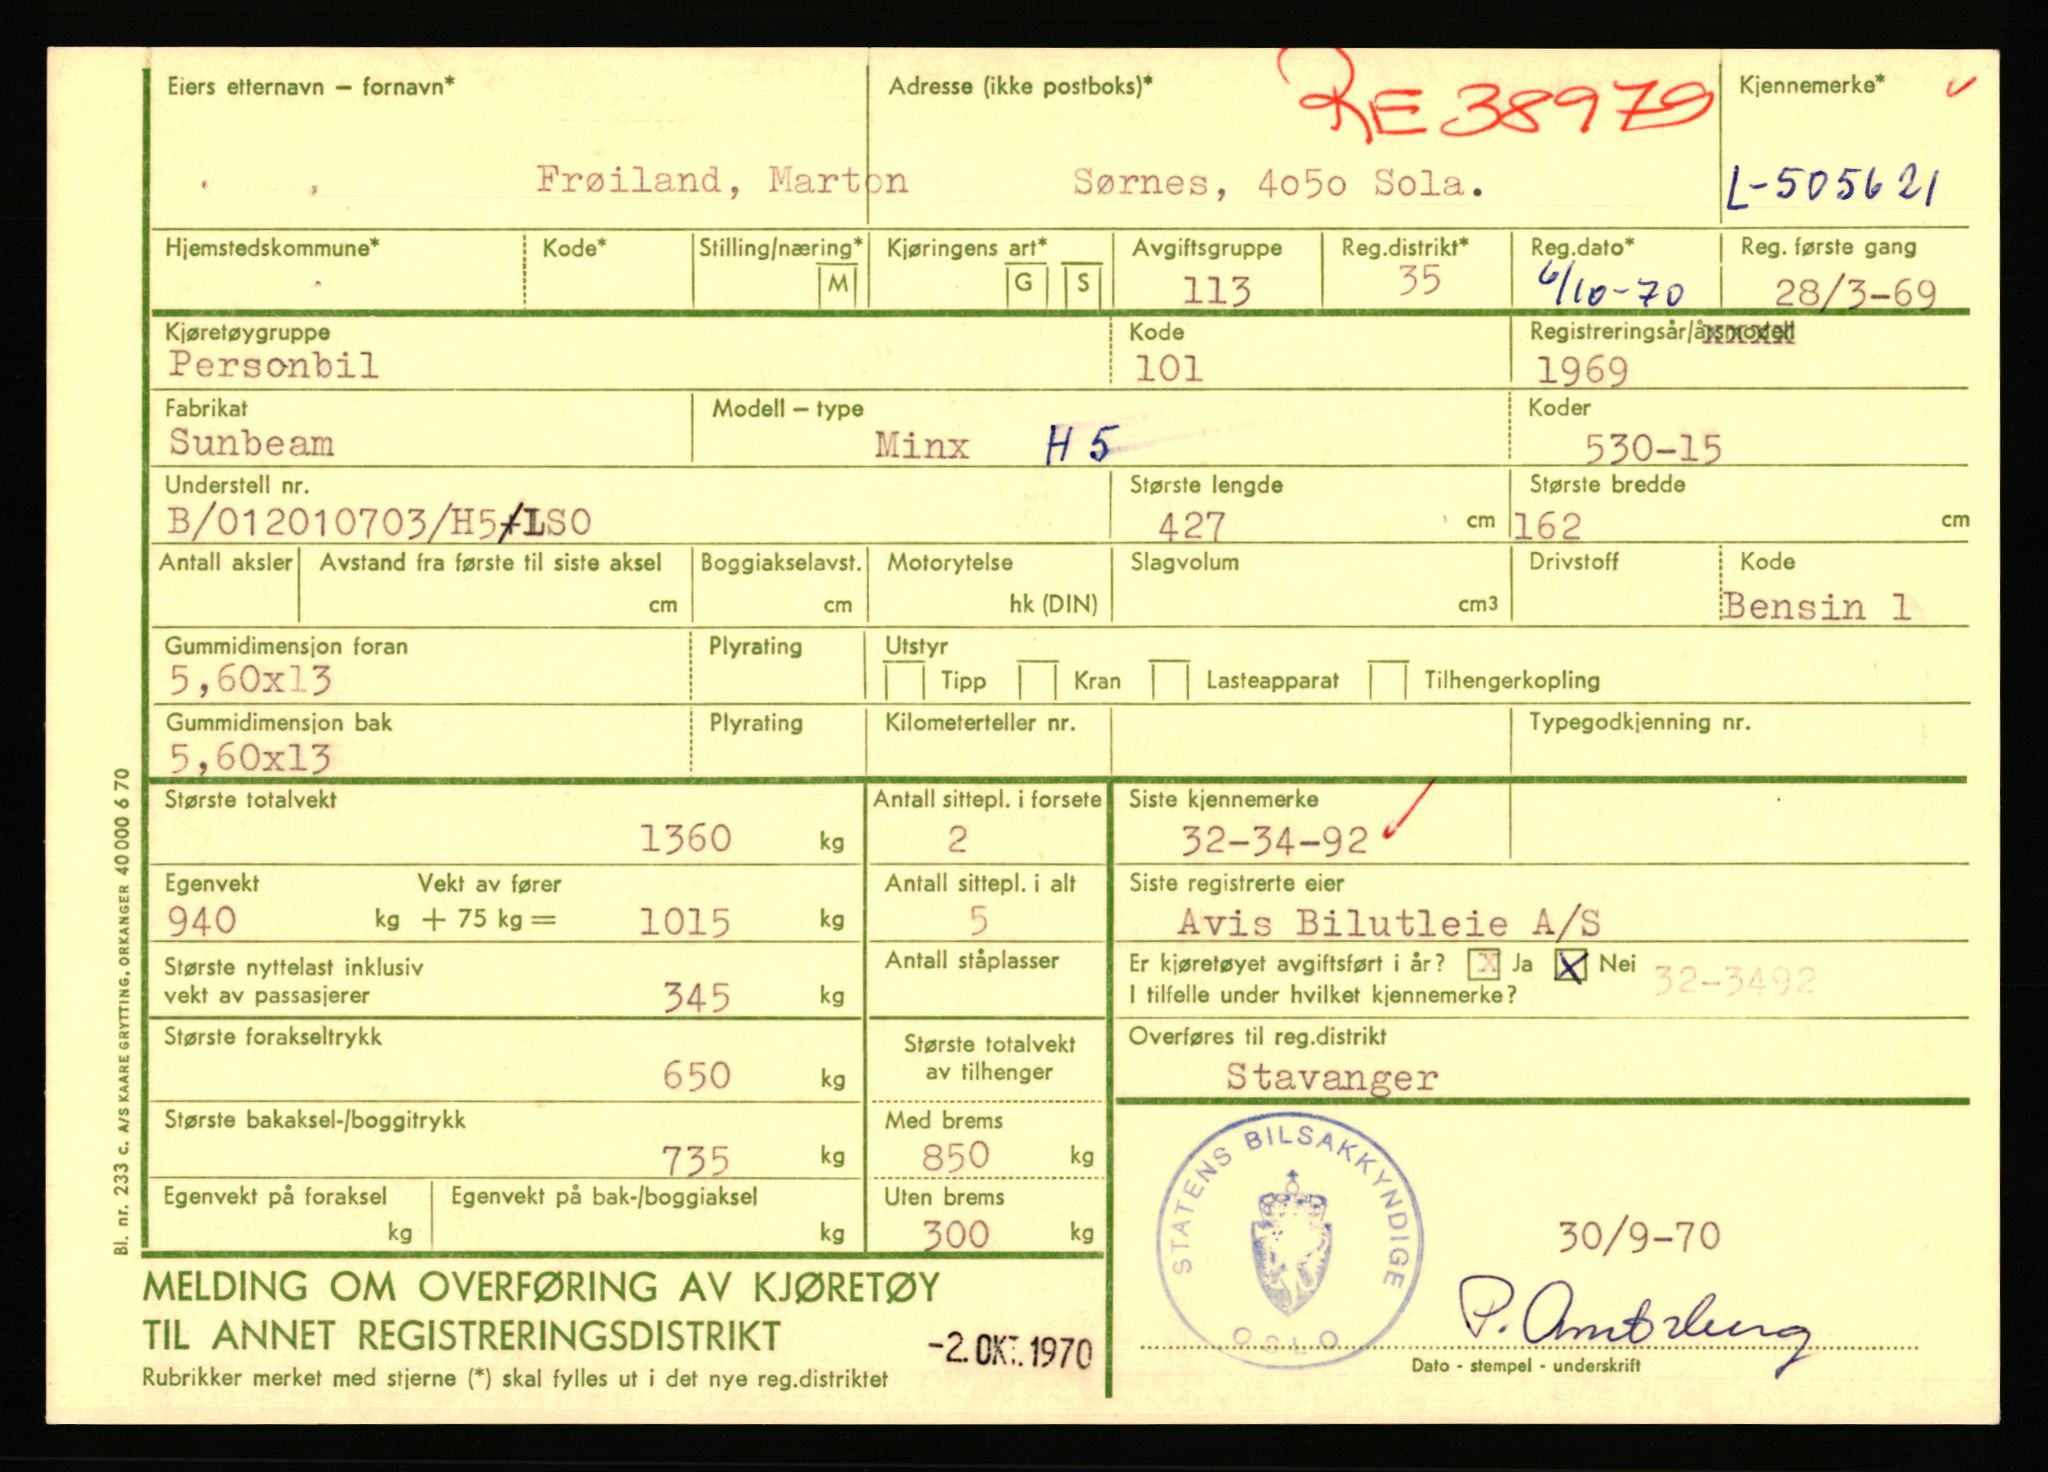 Eiers etternavn – fornavn*
Adresse (ikke postboks)*
RE 38979
Kjennemerke*
Frøiland, Marton
Sørnes, 4050 Sola.
L-505621
Hjemstedskommune*
Kode*
Stilling/næring*
M
Kjøringens art*
G
S
Avgiftsgruppe
113
Reg.distrikt*
35
Reg.dato*
6/10-70
Reg. første gang
28/3-69
Kjøretøygruppe
Personbil
Kode
101
Registreringsår/årsmodell
1969
Fabrikat
Sunbeam
Modell – type
Minx H 5
Koder
530-15
Understell nr.
B/012010703/H5/LSO
Største lengde
427 cm
Største bredde
162 cm
Antall aksler
Avstand fra første til siste aksel
cm
Boggiakselavst.
cm
Motorytelse
hk (DIN)
Slagvolum
cm3
Drivstoff
Kode
Bensin 1
Gummidimensjon foran
5,60x13
Plyrating
Utstyr
Tipp
Kran
Lasteapparat
Tilhengerkopling
Gummidimensjon bak
5,60x13
Plyrating
Kilometerteller nr.
Typegodkjenning nr.
Største totalvekt
1360 kg
Antall sittepl. i forsete
2
Siste kjennemerke
32-34-92
Egenvekt
940 kg
Vekt av fører
+ 75 kg = 1015 kg
Antall sittepl. i alt
5
Siste registrerte eier
Avis Bilutleie A/S
Største nyttelast inklusiv
vekt av passasjerer
345 kg
Antall ståplasser
Er kjøretøyet avgiftsført i år? X Ja X Nei
32-3492
I tilfelle under hvilket kjennemerke?
Største forakseltrykk
650 kg
Største totalvekt
av tilhenger
Overføres til reg.distrikt
Stavanger
Største bakaksel-/boggitrykk
735 kg
Med brems
850 kg
Egenvekt på foraksel
kg
Egenvekt på bak-/boggiaksel
kg
Uten brems
300 kg
STATENS BILSAKKYNDIGE
OSLO
30/9-70
P.
Dato - stempel - underskrift
MELDING OM OVERFØRING AV KJØRETØY
TIL ANNET REGISTRERINGSDISTRIKT
-2. OKT. 1970
Rubrikker merket med stjerne (*) skal fylles ut i det nye reg.distriktet
Bl. nr. 233 c. A/S KAARE GRYTTING, ORKANGER 40 000 6 70